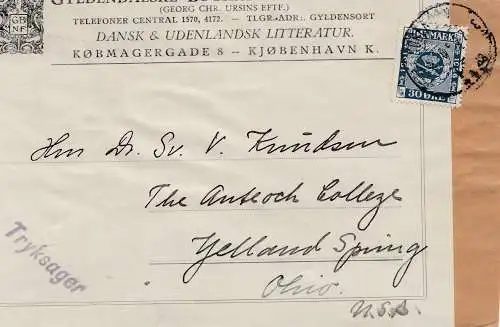 GYLDENDALSKE
(GEORG CHR. URSINS EFTF.)
TELEFONER CENTRAL 1570, 4172. – TLGR-ADR: GYLDENSORT
DANSK & UDENLANDSK LITTERATUR.
KØBMAGERGADE 8 – KJØBENHAVN K.
GB
NF
DANMARK
30 ØRE
Hrn Dr. Sv. V. Knudsen
The Antioch College
Yelland Spring
Ohio.
U.S.A.
Tryksager